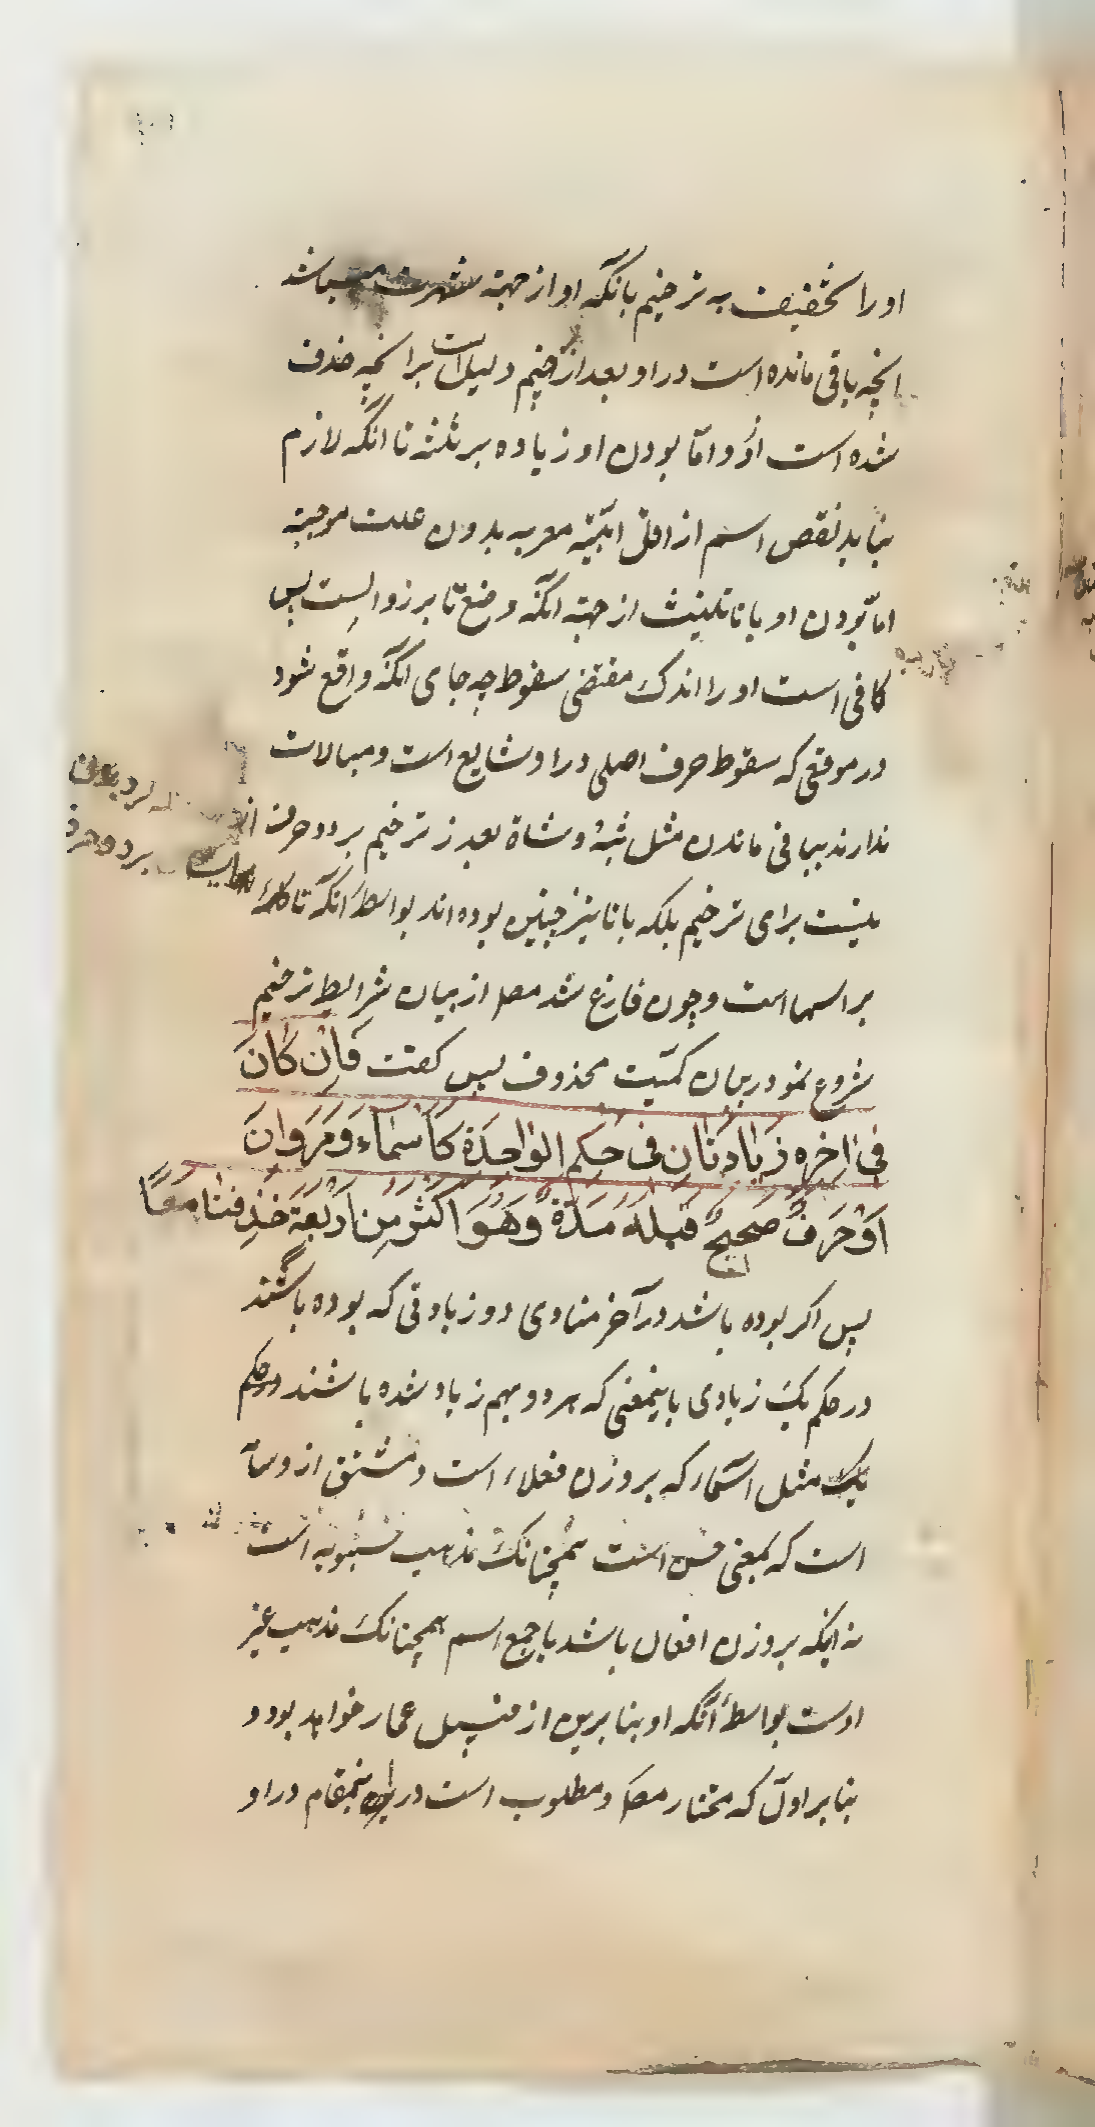 او را تخفیف به ترخیم بانکه او از جهته شهرت میباشد
انچه باقی مانده است در او بعد از ترخیم دلیل است برانچه حذف
شده است ازو و اما بودن او زیاده بر ثلثه تا انکه لازم
نیاید نقص اسم از اقل ابنیه معربه بدون علت موجبه
اما بودن او با تا تانیث از جهته انکه وضع تا بر زوالست پس
کافی است او را اندک مقتضی سقوط چه جای انکه واقع شود
در موقعی که سقوط حرف اصلی در او شایع است و مبالات
ندارند بباقی ماندن مثل ثبة و شاة بعد از ترخیم بر دو حرف
نیست برای ترخیم بلکه با تا نیز چنین بوده اند بواسطه انکه تا کلمهٔ
براسها است و چون فارغ شد مصـ از بیان شرایط ترخیم
شروع نمود در بیان کمیت محذوف پس گفت فَاِنْ كَانَ
فِی اخِرِهِ زِیَادَتَانِ فِی حُکمِ الوَاحِدَةِ کَأَسْمَاءَ وَمَرْوَانَ
اَوْ حَرْفٌ صَحِیحٌ قَبْلَهُ مَدَّةٌ وَهُوَ اَکْثَرُ مِنْ اَرْبَعَةٍ حُذِفَتَا مَعًا
پس اکر بوده باشد در آخر منادی دو زیادتی که بوده باشند
در حکم یک زیادی باینمعنی که هر دو بهم زیاد شده باشند در حکم
یک مثل اسماء که بر وزن فعلاء است و مشتق از وسامة
است که بمعنی حسن است همچنانک مذهب سیبویه است
نه اینکه بر وزن افعال باشد با جمع اسم همچنانک مذهب غیر
اوست بواسطه انکه او بنا برین از قبیل عمار خواهد بود و
بنا بر اول که مختار مصـ و مطلوب است در اینمقام در او
بر دو حرف